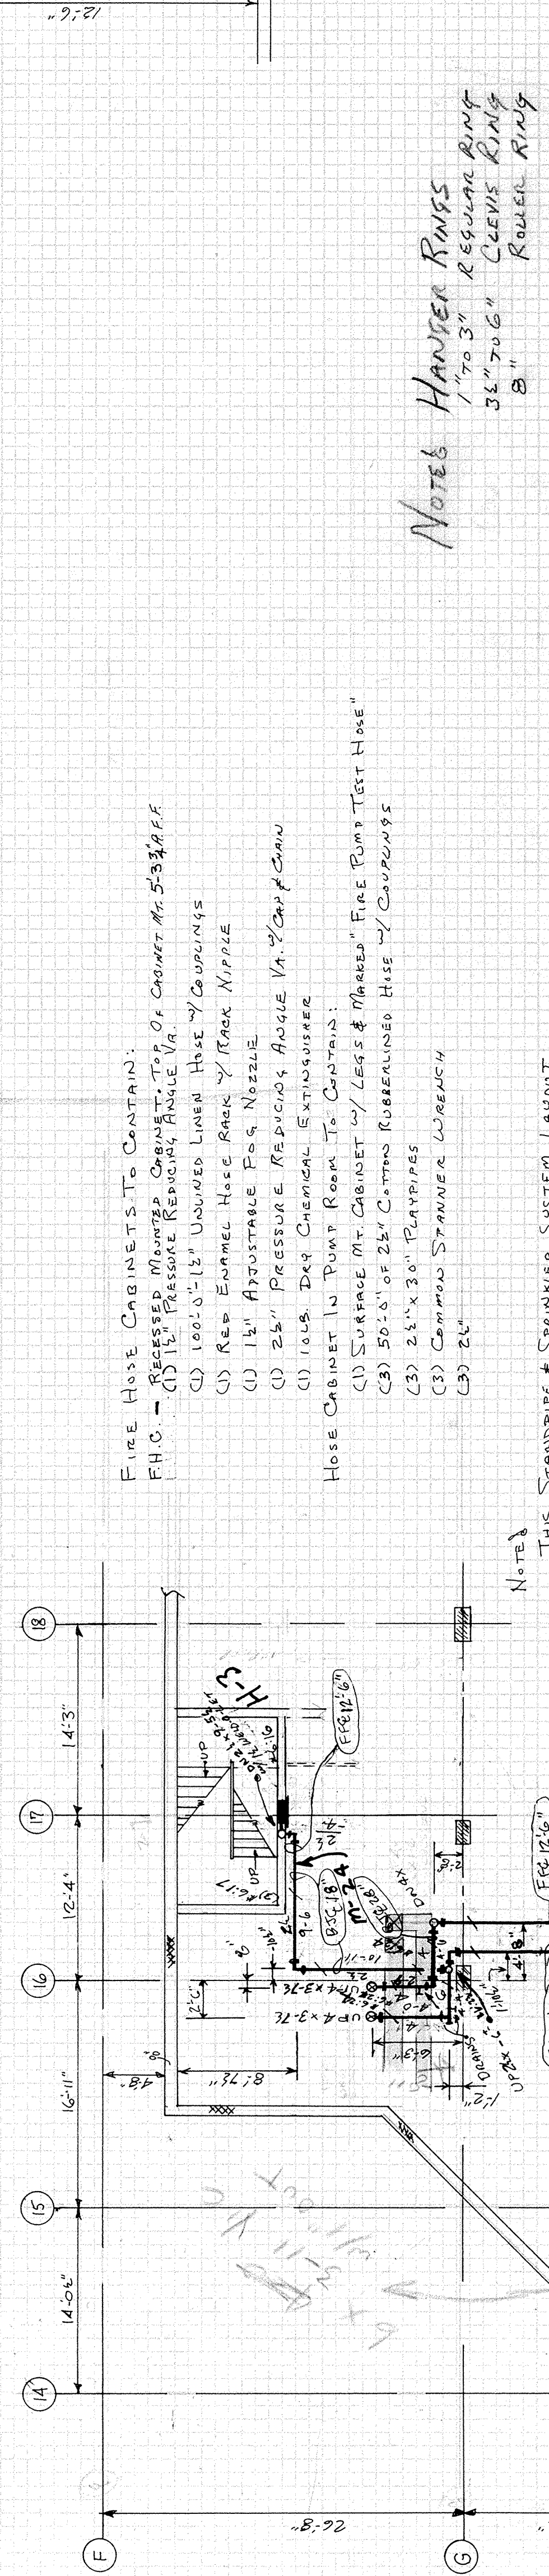 12'-6"
NOTES HANGER RINGS
1" TO 3" REGULAR RING
3½" TO 6" CLEVIS RING
8" ROLLER RING
FIRE HOSE CABINETS TO CONTAIN:
F.H.C. - RECESSED MOUNTED CABINET. TOP OF CABINET MT. 5'-3¾" A.F.F.
(1) 1½" PRESSURE REDUCING ANGLE VA.
(1) 100'-0"-1½" UNLINED LINEN HOSE W/ COUPLINGS
(1) RED ENAMEL HOSE RACK W/ RACK NIPPLE
(1) 1½" ADJUSTABLE FOG NOZZLE
(1) 2½" PRESSURE REDUCING ANGLE VA. W/ CAP & CHAIN
(1) 10LB. DRY CHEMICAL EXTINGUISHER
HOSE CABINET IN PUMP ROOM TO CONTAIN:
(1) SURFACE MT. CABINET W/ LEGS & MARKED "FIRE PUMP TEST HOSE"
(3) 50'-0" OF 2½" COTTON RUBBERLINED HOSE W/ COUPLINGS
(3) 2½" x 30" PLAYPIPES
(3) COMMON SPANNER WRENCH
(3) 2½"
NOTES
THIS STANDPIPE & SPRINKLER SYSTEM LAYOUT
14 15 16 17 18
14'-0½" 16'-11" 12'-4" 14'-3"
F
G
26'-8"
4'-8"
8'-7½"
2'-0"
UP
UP
H-3
FFC 12'-6"
2½
9-6
BSC 18"
M-2-4
10-11
UP 4 x 3-7½
UP 4 x 3-7½
6'-3"
1'-2"
DRAINS
4'-8"
FFC 12'-6"